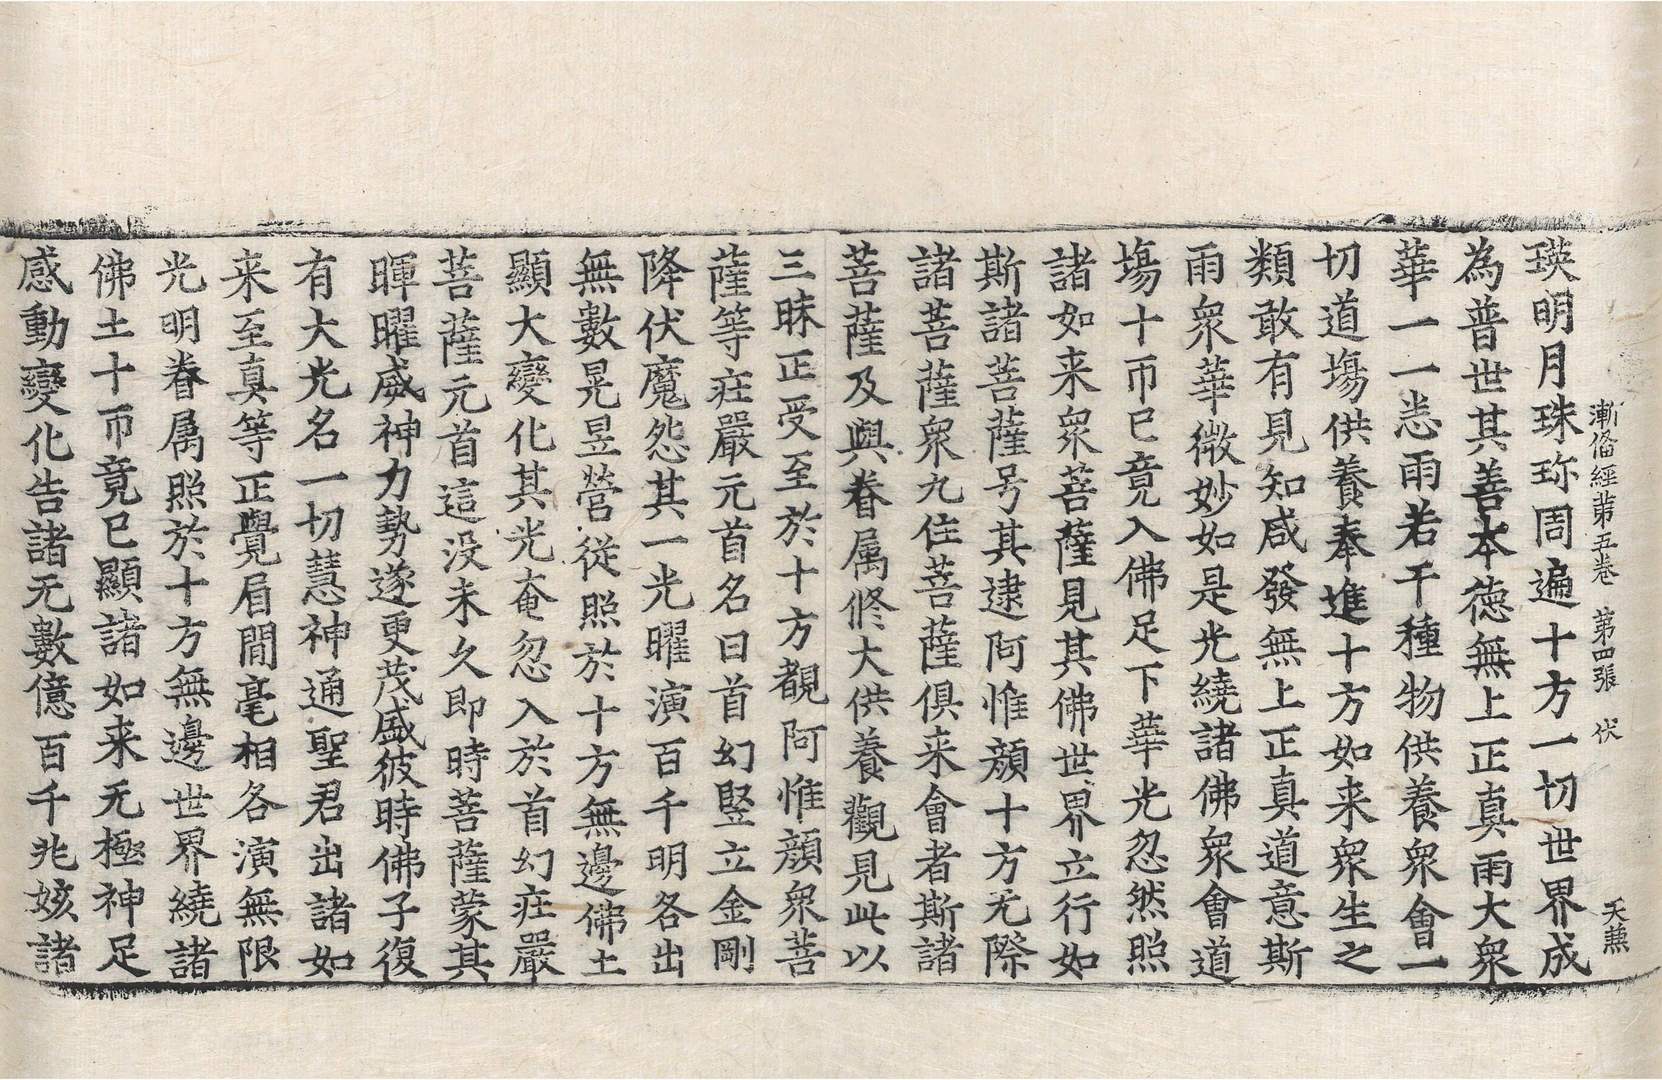 漸偹經苐五卷 第四張 伏 天燕
瑛明月珠珎周遍十方一切世界成
為普世其善本德無上正真雨大衆
華一一恙雨若干種物供養衆會一
切道塲供養奉進十方如来衆生之
類敢有見知咸發無上正真道意斯
雨衆華微妙如是光繞諸佛衆會道
塲十帀已竟入佛足下華光忽然照
諸如来衆菩薩見其佛世界立行如
斯諸菩薩号其逮阿惟顔十方无際
諸菩薩衆九住菩薩俱来會者斯諸
菩薩及與眷属修大供養觀見此以
三昧正受至於十方覩阿惟顔衆菩
薩等莊嚴元首名曰首幻竪立金剛
降伏魔怨其一光曜演百千明各出
無數晃昱營從照於十方無邊佛土
顯大變化其光奄忽入於首幻莊嚴
菩薩元首這没未久即時菩薩蒙其
暉曜威神力勢遂更茂盛彼時佛子復
有大光名一切慧神通聖君出諸如
来至真等正覺眉間毫相各演無限
光明眷属照於十方無邊世界繞諸
佛土十帀竟已顯諸如来无極神足
感動變化告諸无數億百千兆姟諸